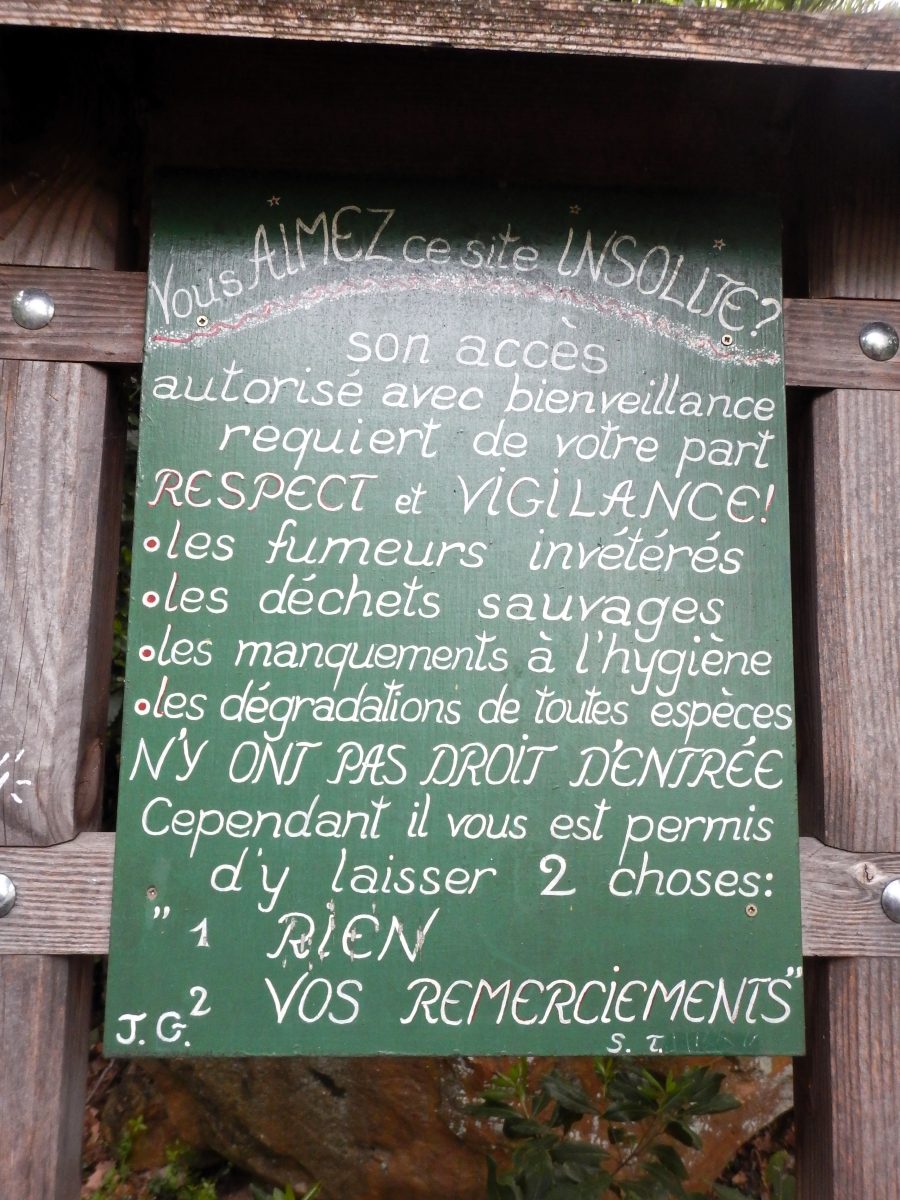 Vous AiMEZ ce site iNSOLiTE?
son accès
autorisé avec bienveillance
requiert de votre part
RESPECT et ViGiLANCE!
•les fumeurs invétérés
•les déchets sauvages
•les manquements à l'hygiène
•les dégradations de toutes espèces
N'Y ONT PAS DROiT D'ENTRÉE
Cependant il vous est permis
d'y laisser 2 choses:
" 1 RiEN
2 VOS REMERCiEMENTS"
J. G. S. T.